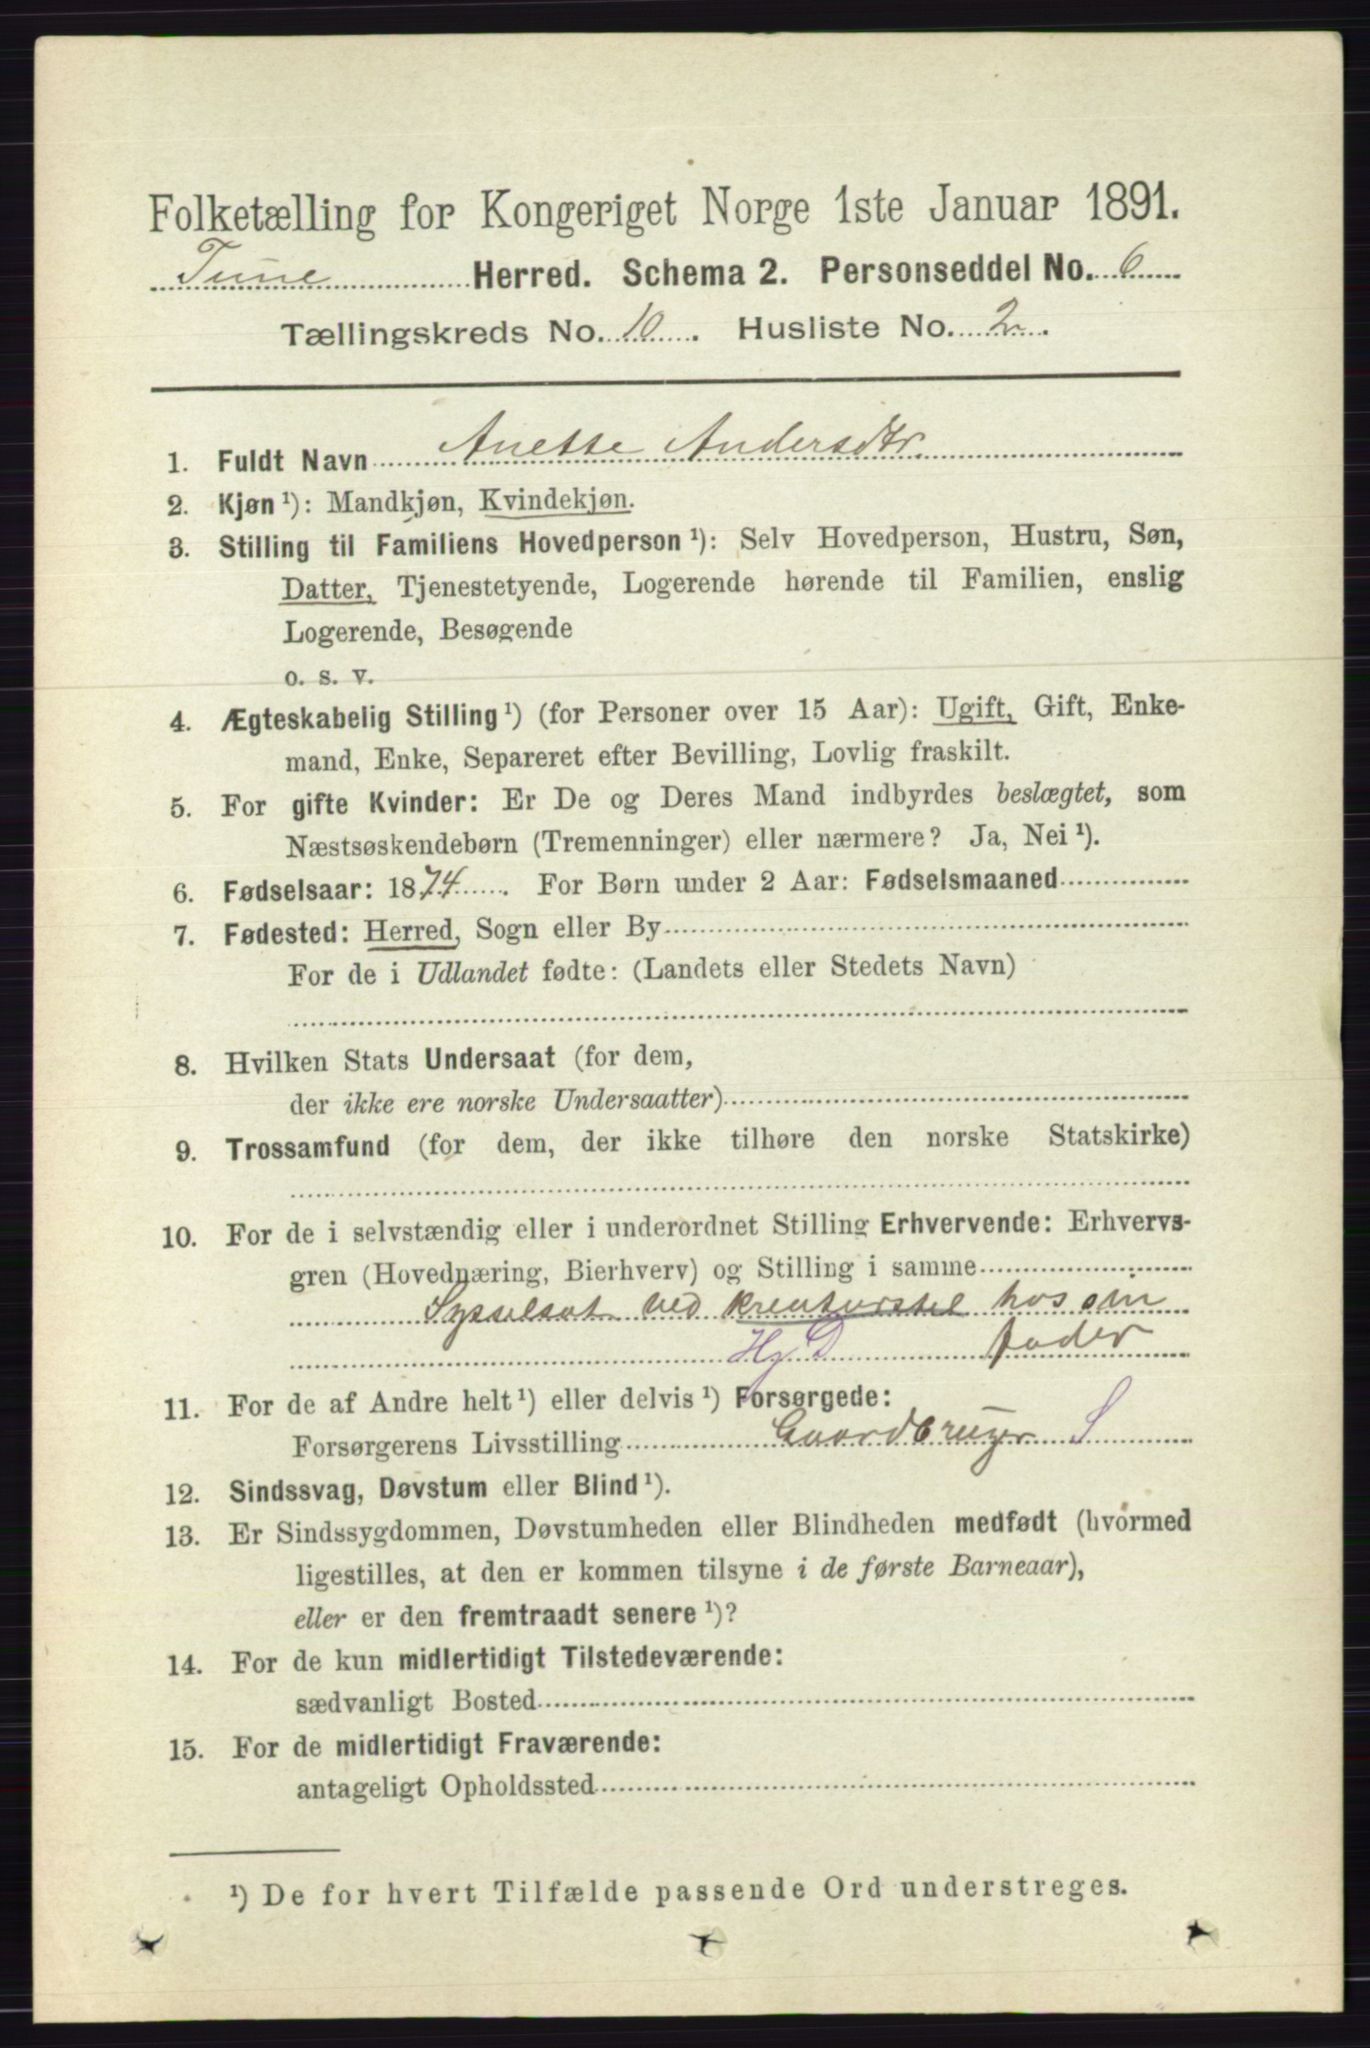 Folketælling for Kongeriget Norge 1ste Januar 1891.
Tune Herred. Schema 2. Personseddel No. 6
Tællingskreds No. 10. Husliste No. 2.
1. Fuldt Navn Anette Andersdtr.
2. Kjøn¹): Mandkjøn, Kvindekjøn.
3. Stilling til Familiens Hovedperson¹): Selv Hovedperson, Hustru, Søn,
Datter, Tjenestetyende, Logerende hørende til Familien, enslig
Logerende, Besøgende
o. s. v.
4. Ægteskabelig Stilling¹) (for Personer over 15 Aar): Ugift, Gift, Enke-
mand, Enke, Separeret efter Bevilling, Lovlig fraskilt.
5. For gifte Kvinder: Er De og Deres Mand indbyrdes beslægtet, som
Næstsøskendebørn (Tremenninger) eller nærmere? Ja, Nei¹).
6. Fødselsaar: 1874. For Børn under 2 Aar: Fødselsmaaned
7. Fødested: Herred, Sogn eller By
For de i Udlandet fødte: (Landets eller Stedets Navn)
8. Hvilken Stats Undersaat (for dem,
der ikke ere norske Undersaatter)
9. Trossamfund (for dem, der ikke tilhøre den norske Statskirke)
10. For de i selvstændig eller i underordnet Stilling Erhvervende: Erhvervs-
gren (Hovednæring, Bierhverv) og Stilling i samme
Sysselsat ved kreaturstel hos sin
Hj D fader
11. For de af Andre helt¹) eller delvis¹) Forsørgede:
Forsørgerens Livsstilling Gaardbruger S
12. Sindssvag, Døvstum eller Blind¹).
13. Er Sindssygdommen, Døvstumheden eller Blindheden medfødt (hvormed
ligestilles, at den er kommen tilsyne i de første Barneaar),
eller er den fremtraadt senere¹)?
14. For de kun midlertidigt Tilstedeværende:
sædvanligt Bosted
15. For de midlertidigt Fraværende:
antageligt Opholdssted
¹) De for hvert Tilfælde passende Ord understreges.